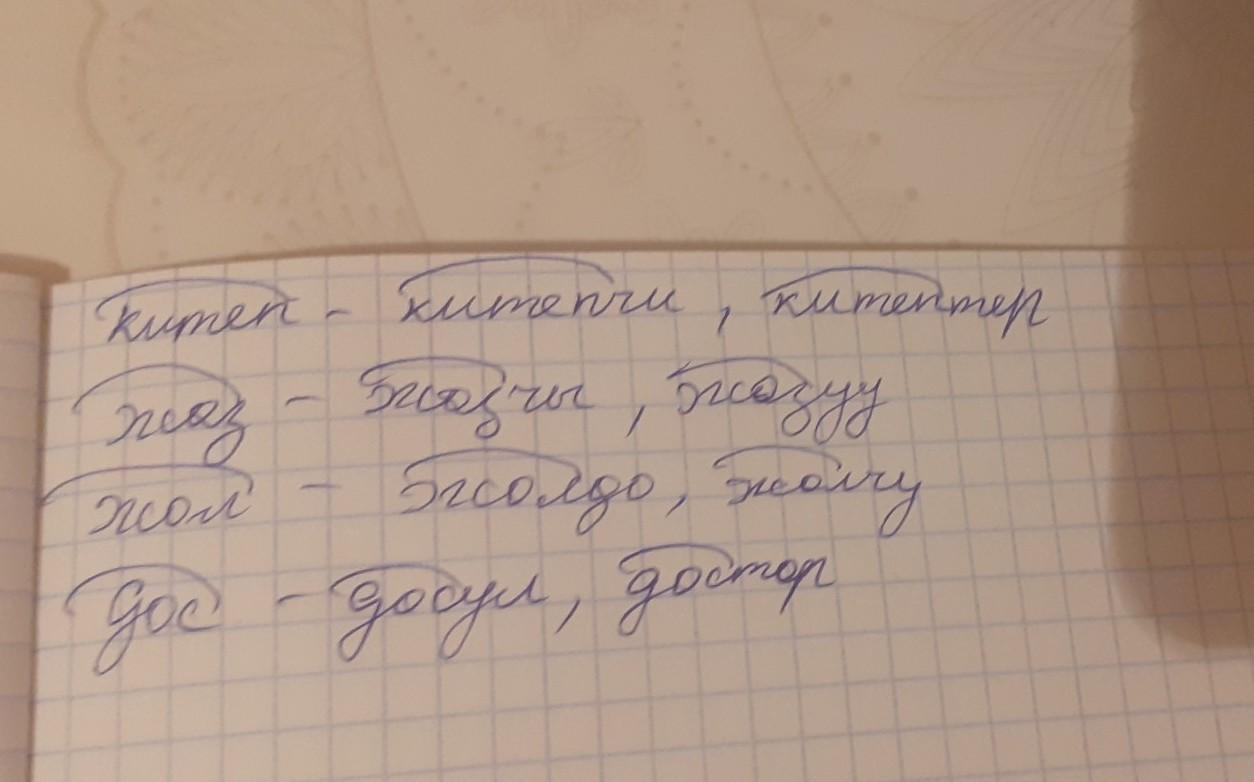 китеп - китепчи, китептер
жаз - жазчы, жазуу
жол - жолдо, жолчу
дос - досул, достор